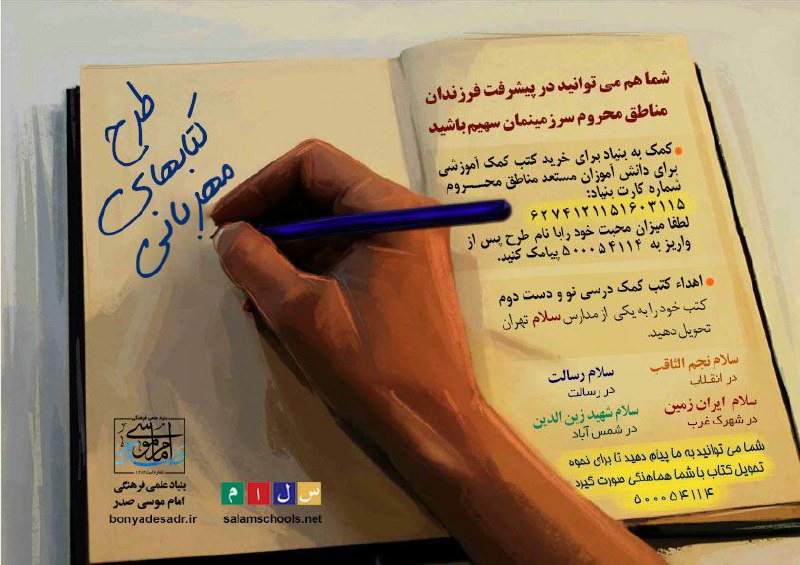 طرح
کتابهای
مهربانی
شما هم می توانید در پیشرفت فرزندان
مناطق محروم سرزمینمان سهیم باشید
کمک به بنیاد برای خرید کتب کمک آموزشی
برای دانش آموزان مستعد مناطق محروم
شماره کارت بنیاد:
۶۲۷۴۱۲۱۱۵۱۶۰۳۱۱۵
لطفا میزان محبت خود را با نام طرح پس از
واریز به ۵۰۰۰۵۴۱۱۴ پیامک کنید.
اهداء کتب کمک درسی نو و دست دوم
کتب خود را به یکی از مدارس سلام تهران
تحویل دهید.
سلام نجم الثاقب
در انقلاب
سلام رسالت
در رسالت
سلام ایران زمین
در شهرک غرب
سلام شهید زین الدین
در شمس آباد
شما می توانید به ما پیام دهید تا برای نحوه
تحویل کتاب با شما هماهنگی صورت گیرد
۵۰۰۰۵۴۱۱۴
بنیاد علمی فرهنگی
امام موسی صدر
بنیاد علمی فرهنگی
امام موسی صدر
bonyadesadr.ir
سلام
salamschools.net